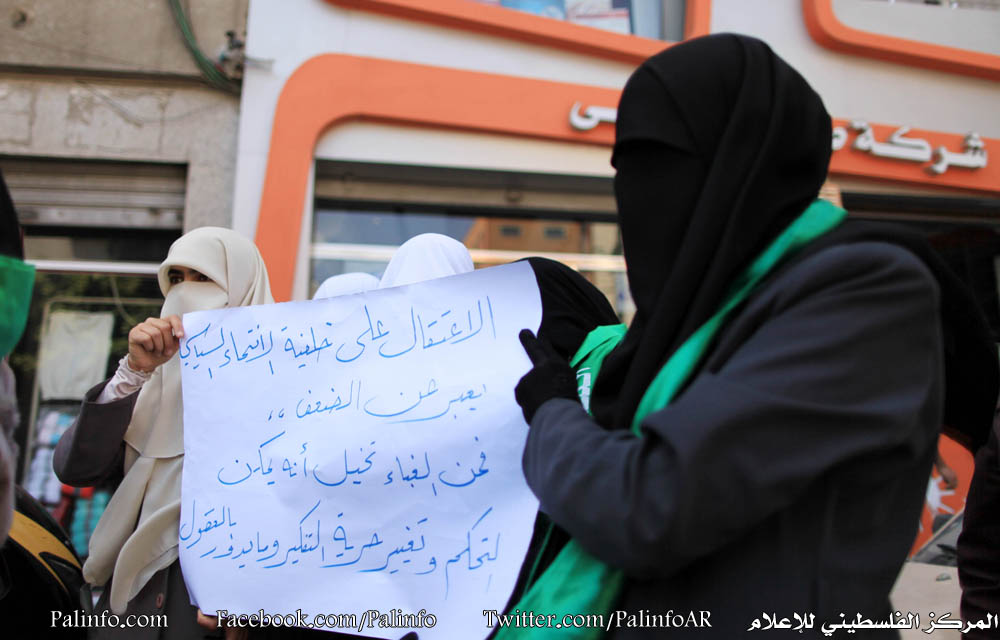 شركة
الاعتقال على خلفية الأنتماء السياسي
يعبر عن الضعف ،،
فمن الغباء تخيل أنه يمكن
التحكم وتغيير حرية التفكير وما يدور بالعقول
Palinfo.com Facebook.com/Palinfo Twitter.com/PalinfoAR المركز الفلسطيني للإعلام